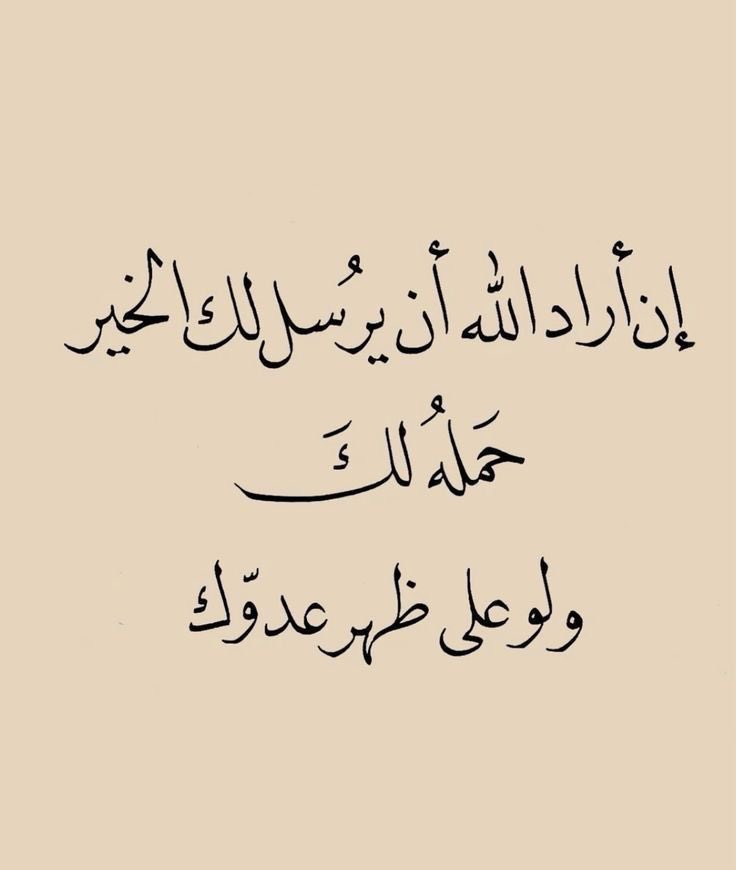 إن أراد الله أن يرُسل لك الخير
حَملهُ لكَ
ولو على ظهر عدوّك